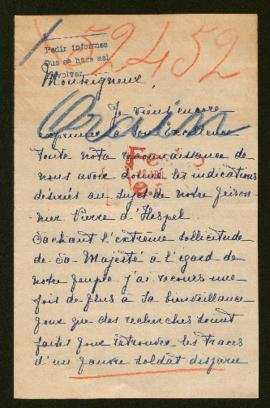 52452
Pedir informes
Que se hare asi
Devolver
Monseigneur,
Je viens encore
exprimer à Son Excellence
toute notre reconnaissance de
nous avoir donné les indications
désirées au sujet de notre prison-
nier Pierre d'Hespel
Sachant l'extrême sollicitude
de Sa Majesté à l'égard de
notre peuple j'ai recours une
fois de plus à sa bienveillance
pour que des recherches soient
faites pour retrouver les traces
d'un pauvre soldat disparu